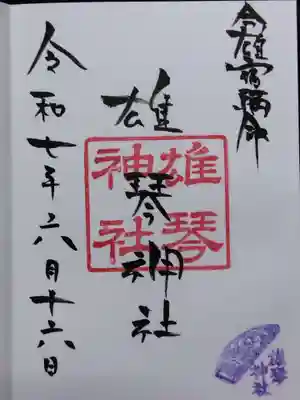 今雄宿禰命
雄琴神社
雄琴
神社
令和七年六月十六日
雄琴
神社